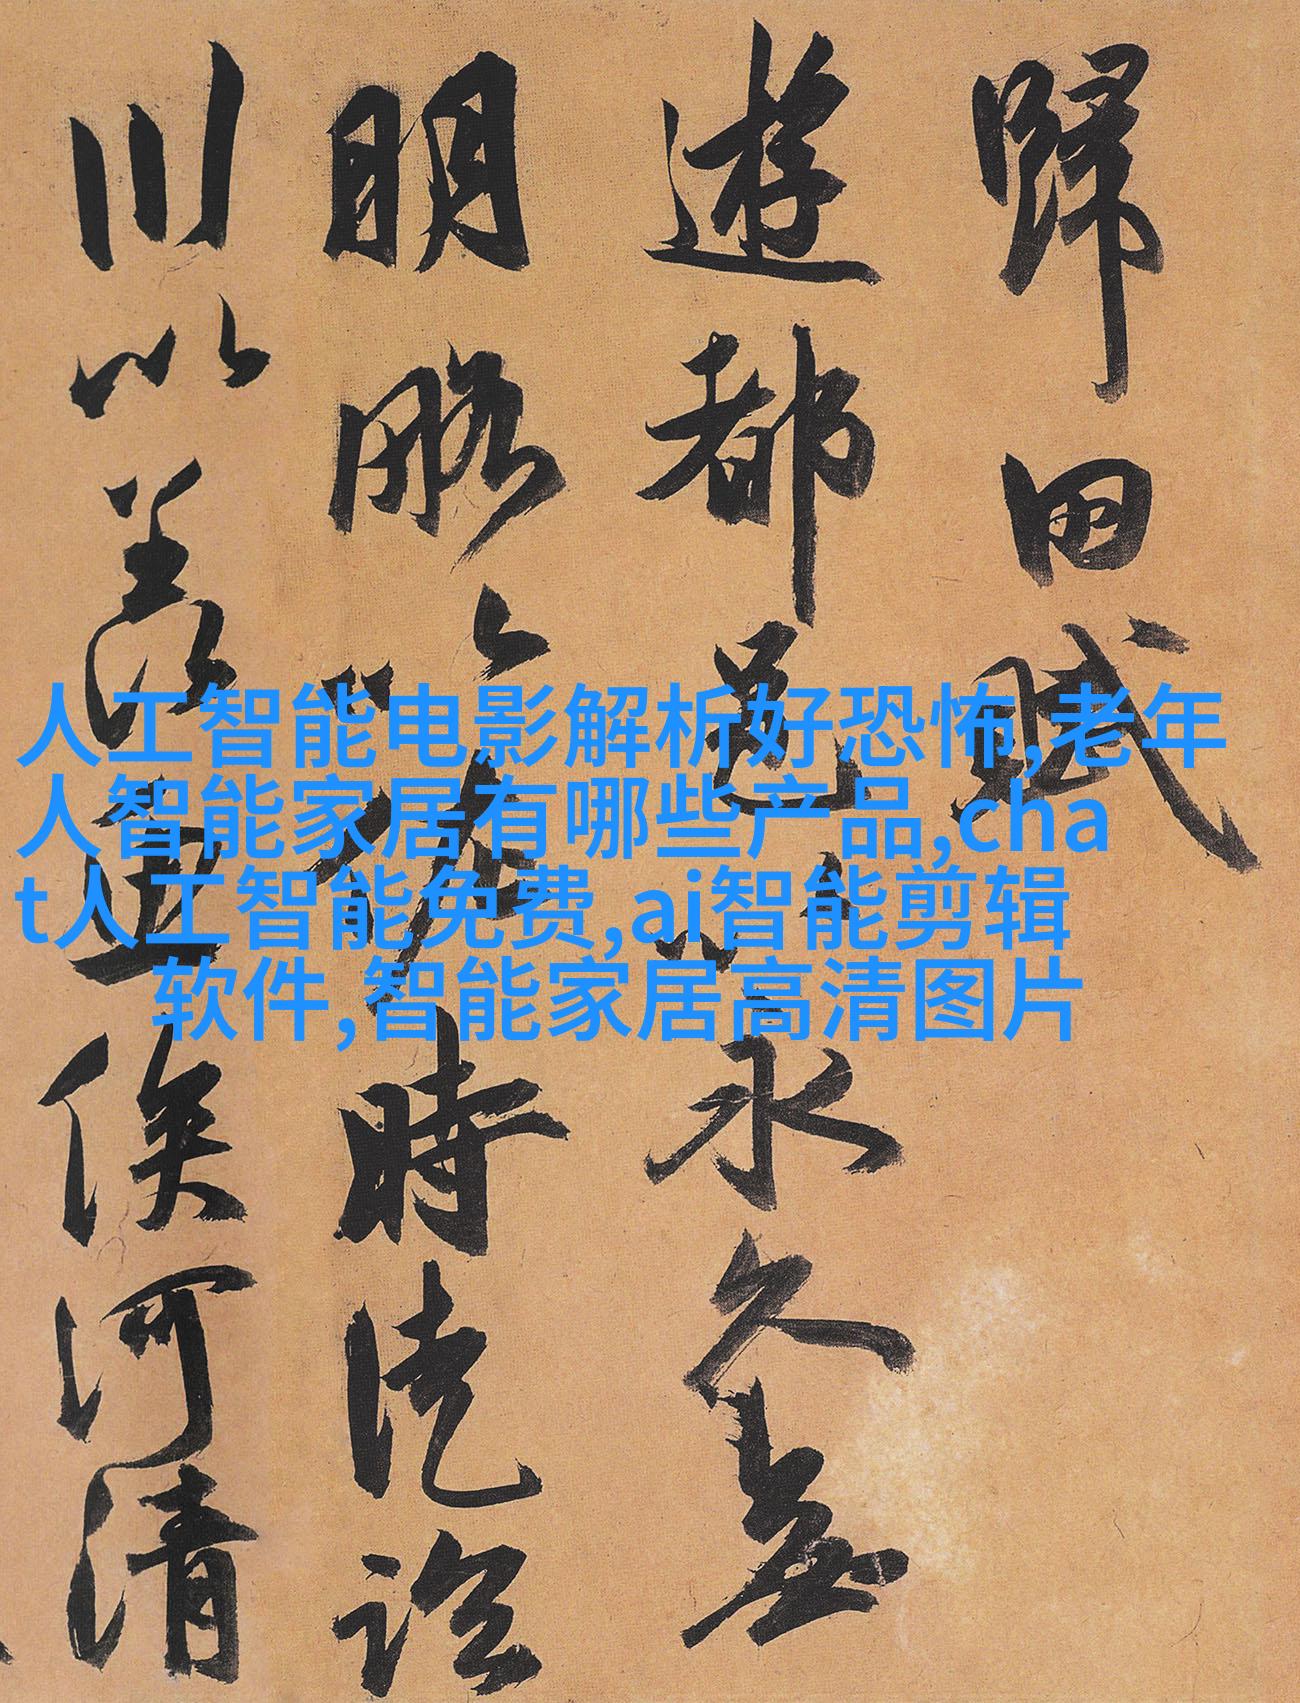 歸田賦
遊都邑以永久無
明略以佐時徒臨
川以羨魚俟河清
人工智能电影解析好恐怖,老年
人智能家居有哪些产品,cha
t人工智能免费,ai智能剪辑
软件,智能家居高清图片